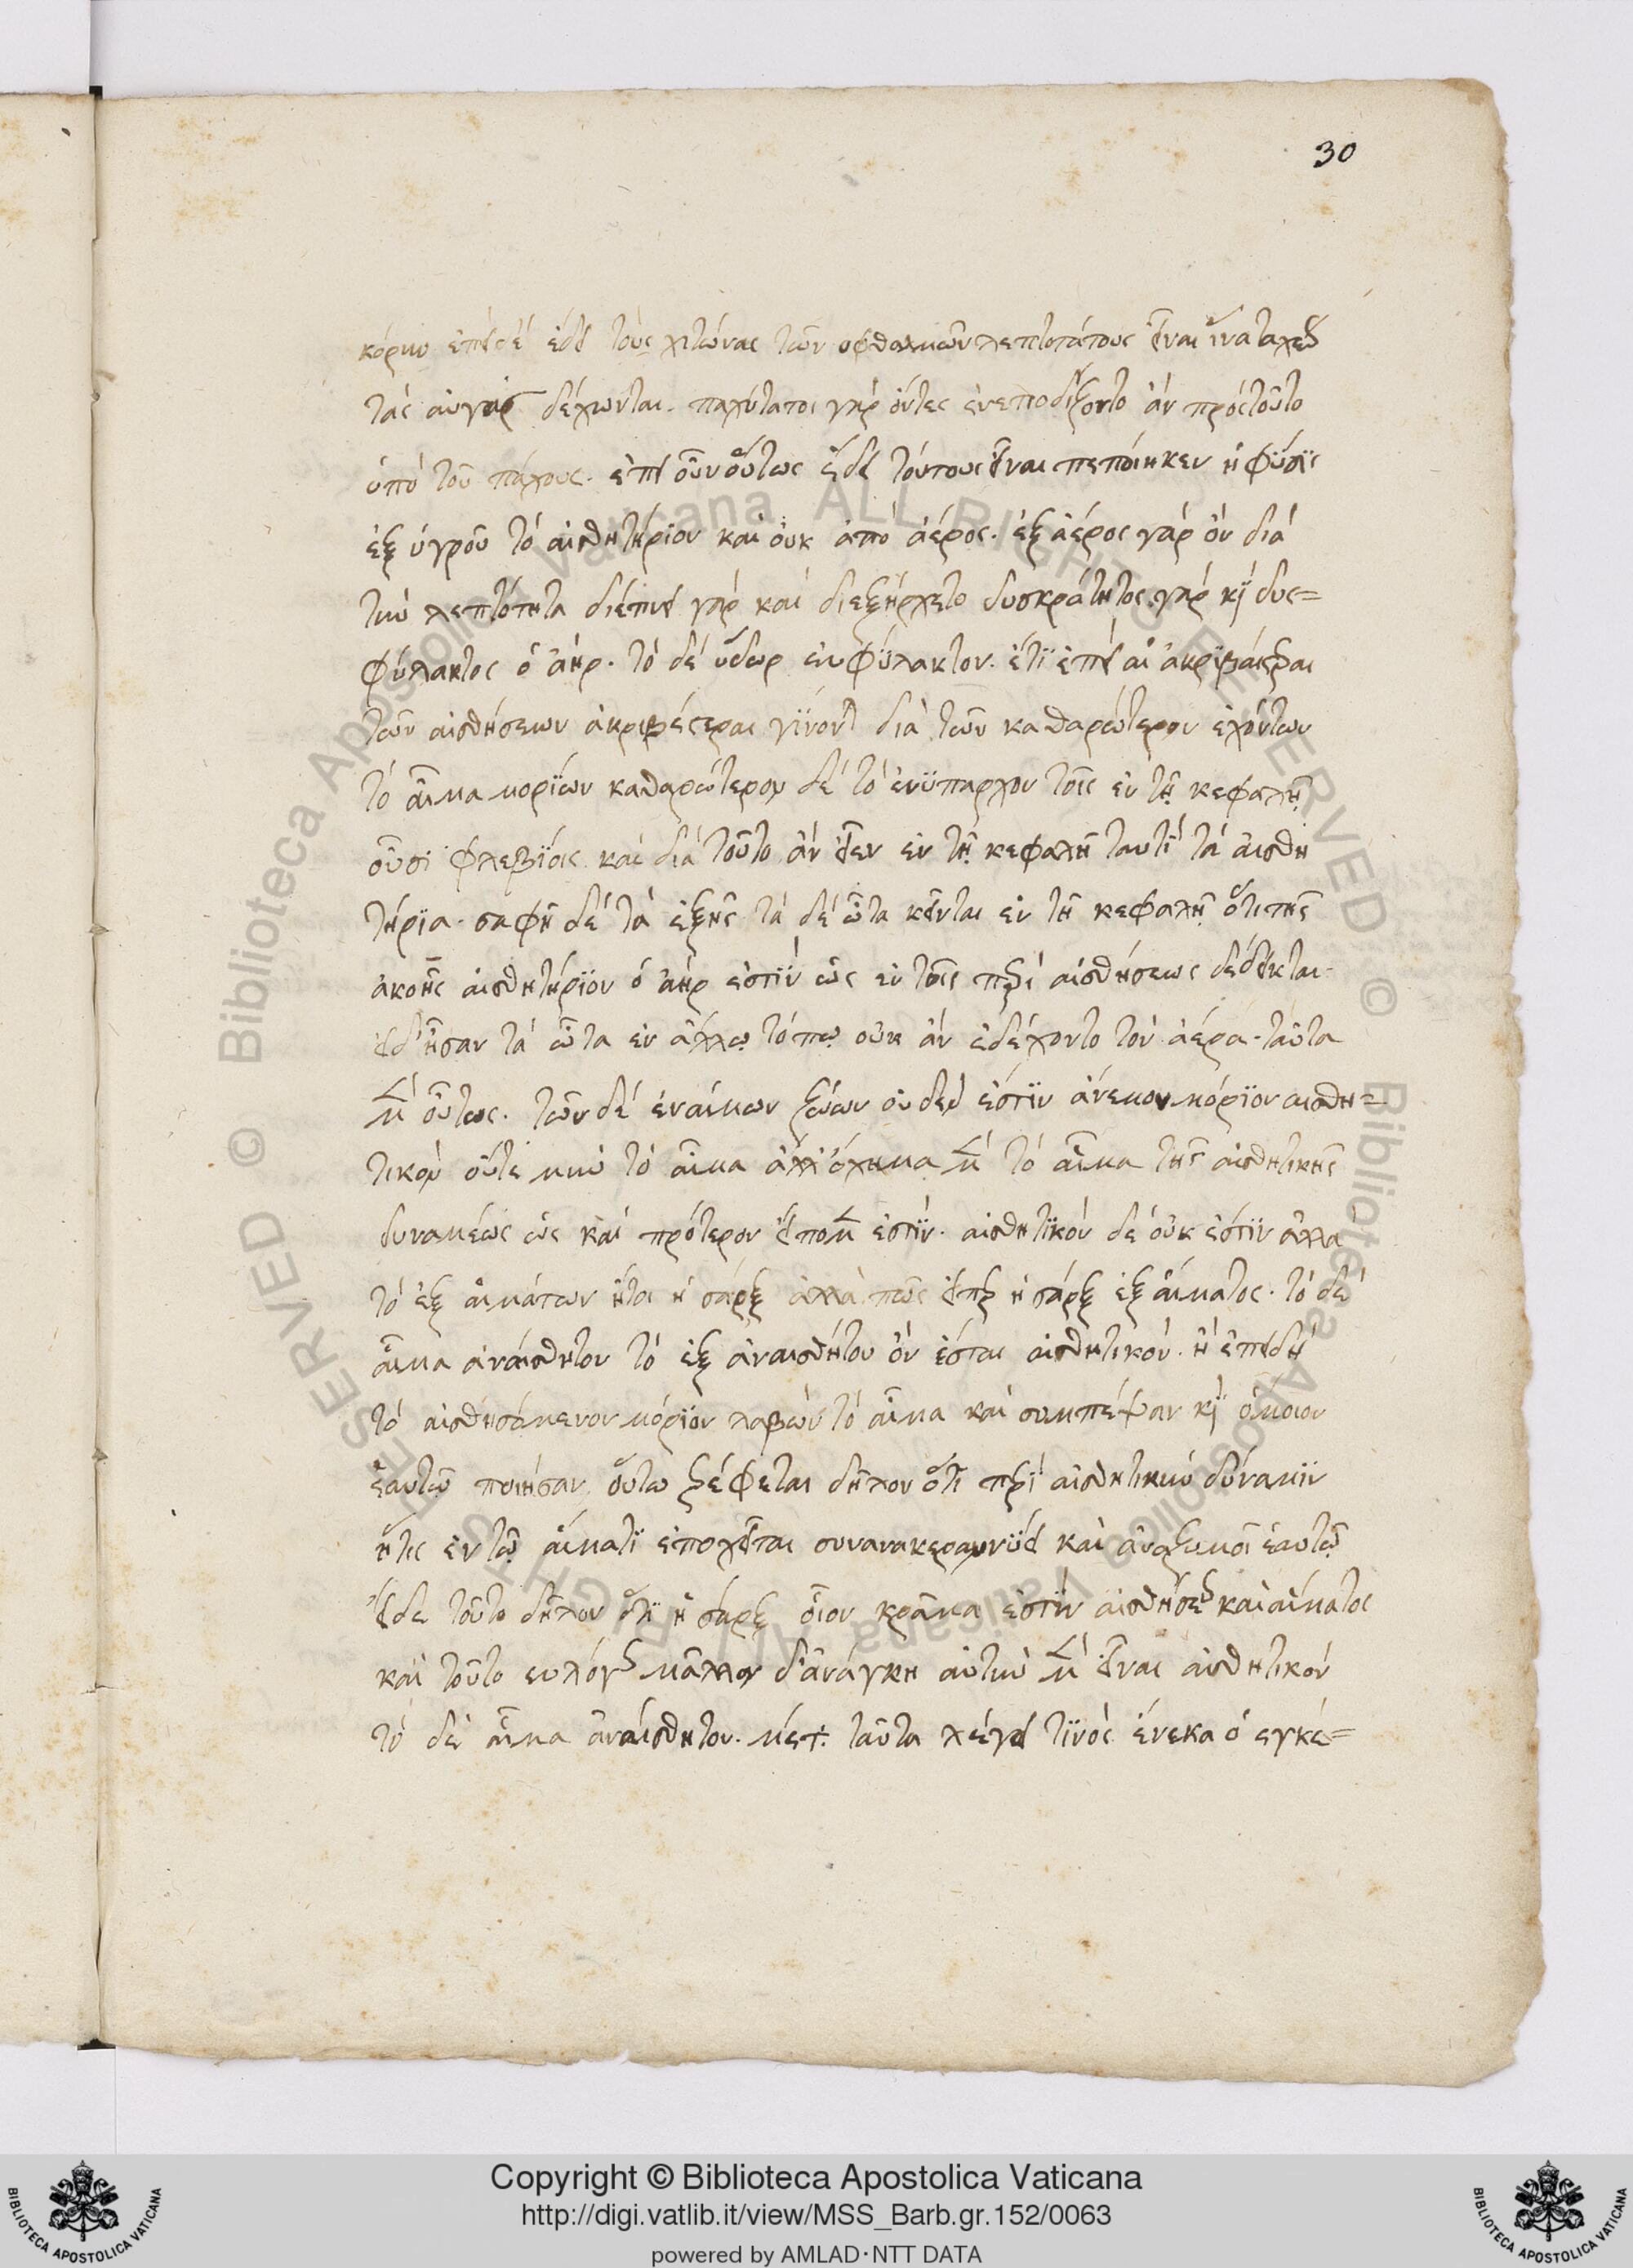 30
κόρην ἐπεὶ δέ ἔδει τοὺς χιτώνας τῶν οφθαλμῶν λεπτοτάτους εἶναι ἵνα ταχέως
τὰς αὐγὰς δέχωνται. παχύτατοι γὰρ ὄντες ἐνεποδίζοντο ἀν πρὸς τοῦτο
ὑπὸ τοῦ πάχους. ἐπεὶ οὖν οὕτως ἔδει τούτους εἶναι πεποίηκεν ἡ φύσϊς
ἐξ ὑγροῦ τὸ αἰσθητήριον καὶ οὐκ ἀπὸ ἀέρος. ἐξ ἀέρος γὰρ ὂν διὰ
τὴν λεπτότητα διέπνει γὰρ καὶ διεξήρχετο δυσκράτητος γὰρ κὶ δυς=
φύλακτος ὁ ἀὴρ. τὸ δὲ ὕδωρ ευφύλακτον. ἔτϊ ἐπεὶ αἱ ἀκρϊβέστεραι
τῶν αἰσθήσεων ἀκριβέστεραι γίνονται διὰ τῶν καθαρώτερον ἐχόντων
τὸ αἷμα μορίων καθαρώτερον δὲ τὸ ἐνϋπαρχον τοῖς ἐν τῇ κεφαλῇ
οὖσι φλεβϊοις καὶ διὰ τοῦτο ἂν εἶεν ἐν τῇ κεφαλῇ ταυτὶ τὰ αισθη
τήρϊα. σαφῆ δὲ τὰ ἑξῆς τὰ δὲ ὦτα κεῖνται ἐν τῇ κεφαλῇ ὅτι τῆς
ἀκοῆς αἰσθητήρϊον ὁ ἀὴρ ἐστϊν ὡς ἐν τοῖς περὶ αἰσθήσεως δέδεικται.
εἰ δ' ἦσαν τὰ ὦτα ἐν ἄλλῳ τόπῳ οὐκ ἂν ἐδέχοντο τὸν ἀέρα. ταῦτα
μὲν οὕτως. τῶν δὲ ἐναίμων ζώων οὐδὲν ἐστϊν ἀνεμον μόρϊον αισθη=
τικὸν οὔτε μὴν τὸ αἷμα ἀλλ' ὄχημα μὲν τὸ αἷμα τῆς αἰσθητικῆς
δυναμέως ὡς καὶ πρότερον εἴπομεν ἐστϊν. αἰσθητϊκὸν δὲ οὐκ ἐστϊν ἀλλὰ
τὸ ἐξ αἱμάτων ἤτοι ἡ σάρξ ἀλλὰ πῶς εἴπερ ἡ σάρξ ἐξ αἵματος. τὸ δὲ
αἷμα ἀναίσθητον τὸ ἐξ ἀναισθήτου ὂν ἔσται αἰσθητικὸν. ἢ ἐπειδὴ
τὸ αἰσθησόμενον μόρϊον λαβὼν τὸ αἷμα καὶ συμπέψαν κὶ ὅμοιον
ἑαυτῷ ποιήσαν οὕτω τρέφεται δῆλον ὅτι περὶ αἰσθητικὴν δύναμϊν
ἥτις ἐν τῷ αἵματϊ ἐποχεῖται συνανακεραννύει καὶ ἀναζυμοῖ ἑαυτῷ
εἰ δὲ τοῦτο δῆλον ὅτϊ ἡ σάρξ οἷον κρᾶμα ἐστϊν αἰσθήσεως καὶ αἵματος
καὶ τοῦτο ευλόγως μᾶλλον δ' ἀνάγκη αὐτὴν μὲν εἶναι αἰσθητικὸν
τὸ δὲ αἷμα ἀναίσθητον. μετ. ταῦτα λέγει τϊνὸς ἕνεκα ὁ εγκέ=